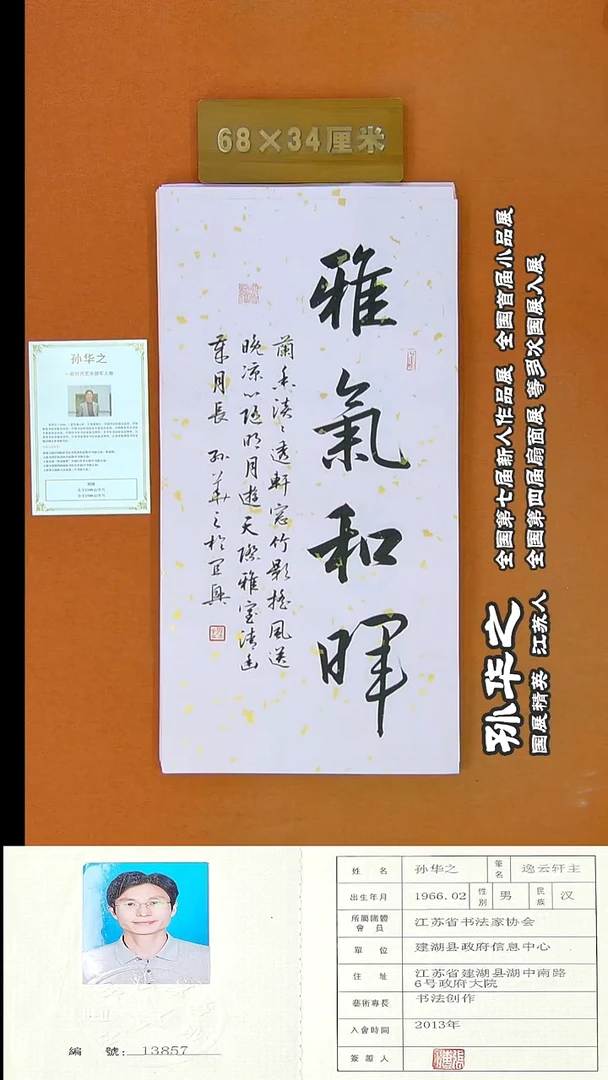 68×34厘米
雅氣和暉
蘭香淡淡透軒窓竹影搖風送
晚凉心随明月遊天際雅室清幽
葉月長 孙华之於宜興
孙华之
全国第七届新人作品展 全国首届小品展
全国第四届扇面展 等多次国展入展
孙华之
国展精英 江苏人
姓名 孙华之 筆名 逸云轩主
出生年月 1966.02 性别 男 民族 汉
所屬團體會員 江苏省书法家协会
單位 建湖县政府信息中心
住址 江苏省建湖县湖中南路
6号政府大院
藝術專長 书法创作
入會時間 2013年
簽證人
編號: 13857